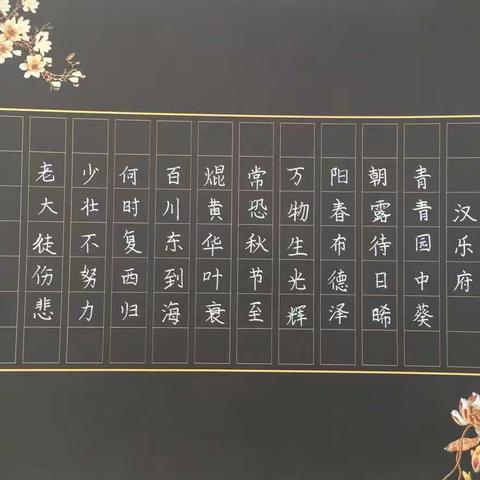 汉乐府
青青园中葵
朝露待日晞
阳春布德泽
万物生光辉
常恐秋节至
焜黄华叶衰
百川东到海
何时复西归
少壮不努力
老大徒伤悲